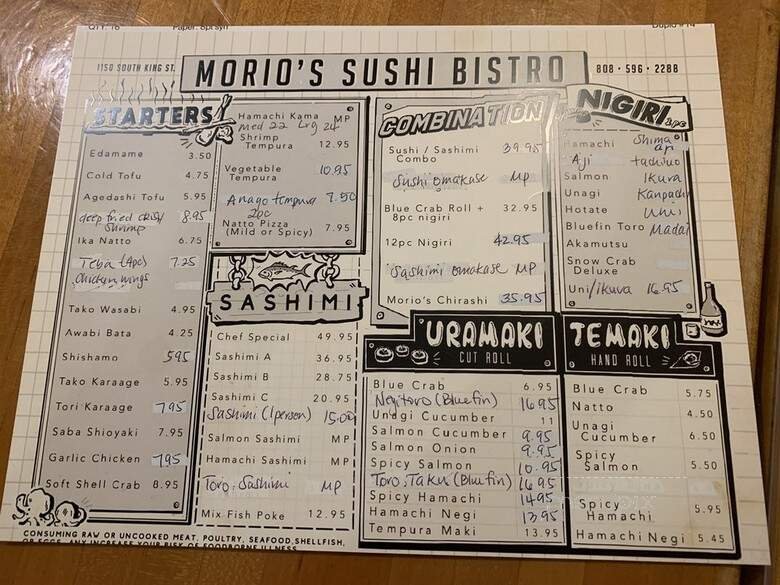 QTY: 16
1150 SOUTH KING ST.
MORIO'S SUSHI BISTRO
808 • 596 • 2288
STARTERS
Edamame 3.50
Cold Tofu 4.75
Agedashi Tofu 5.95
deep fried crispy 8.95
Shrimp
Ika Natto 6.75
Teba (4pc) 7.25
Chicken wings
Tako Wasabi 4.95
Awabi Bata 4.25
Shishamo 595
Tako Karaage 5.95
Tori Karaage 795
Saba Shioyaki 7.95
Garlic Chicken 795
Soft Shell Crab 8.95
Hamachi Kama MP
med 22 Lrg 24
Shrimp
Tempura 12.95
Vegetable 10.95
Tempura
Anago tempura 7.50
2pc
Natto Pizza 7.95
(Mild or Spicy)
SASHIMI
Chef Special 49.95
Sashimi A 36.95
Sashimi B 28.75
Sashimi C 20.95
Sashimi (1person) 15.00
Salmon Sashimi MP
Hamachi Sashimi MP
Toro, Sashimi MP
Mix Fish Poke 12.95
COMBINATION
Sushi / Sashimi 39.95
Combo
Sushi omakase MP
Blue Crab Roll + 32.95
8pc nigiri
12pc Nigiri 42.95
Sashimi omakase MP
Morio's Chirashi 35.95
NIGIRI 2pc
Hamachi Shima
aji
Aji tachiuo
Salmon Ikura
Unagi Kanpachi
Hotate Uni
Bluefin Toro Madai
Akamutsu
Snow Crab
Deluxe
Uni/ikura 16.95
URAMAKI
CUT ROLL
Blue Crab 6.95
Negitoro (Bluefin) 16.95
Unagi Cucumber 11
Salmon Cucumber 9.95
Salmon Onion 9.95
Spicy Salmon 10.95
Toro, Taku (Bluefin) 16.95
Spicy Hamachi 14.95
Hamachi Negi 13.95
Tempura Maki 13.95
TEMAKI
HAND ROLL
Blue Crab 5.75
Natto 4.50
Unagi
Cucumber 6.50
Spicy
Salmon 5.50
Spicy
Hamachi 5.95
Hamachi Negi 5.45
CONSUMING RAW OR UNCOOKED MEAT, POULTRY, SEAFOOD, SHELLFISH,
OR EGGS, ANY INCREASE YOUR RISK OF FOODBORNE ILLNESS